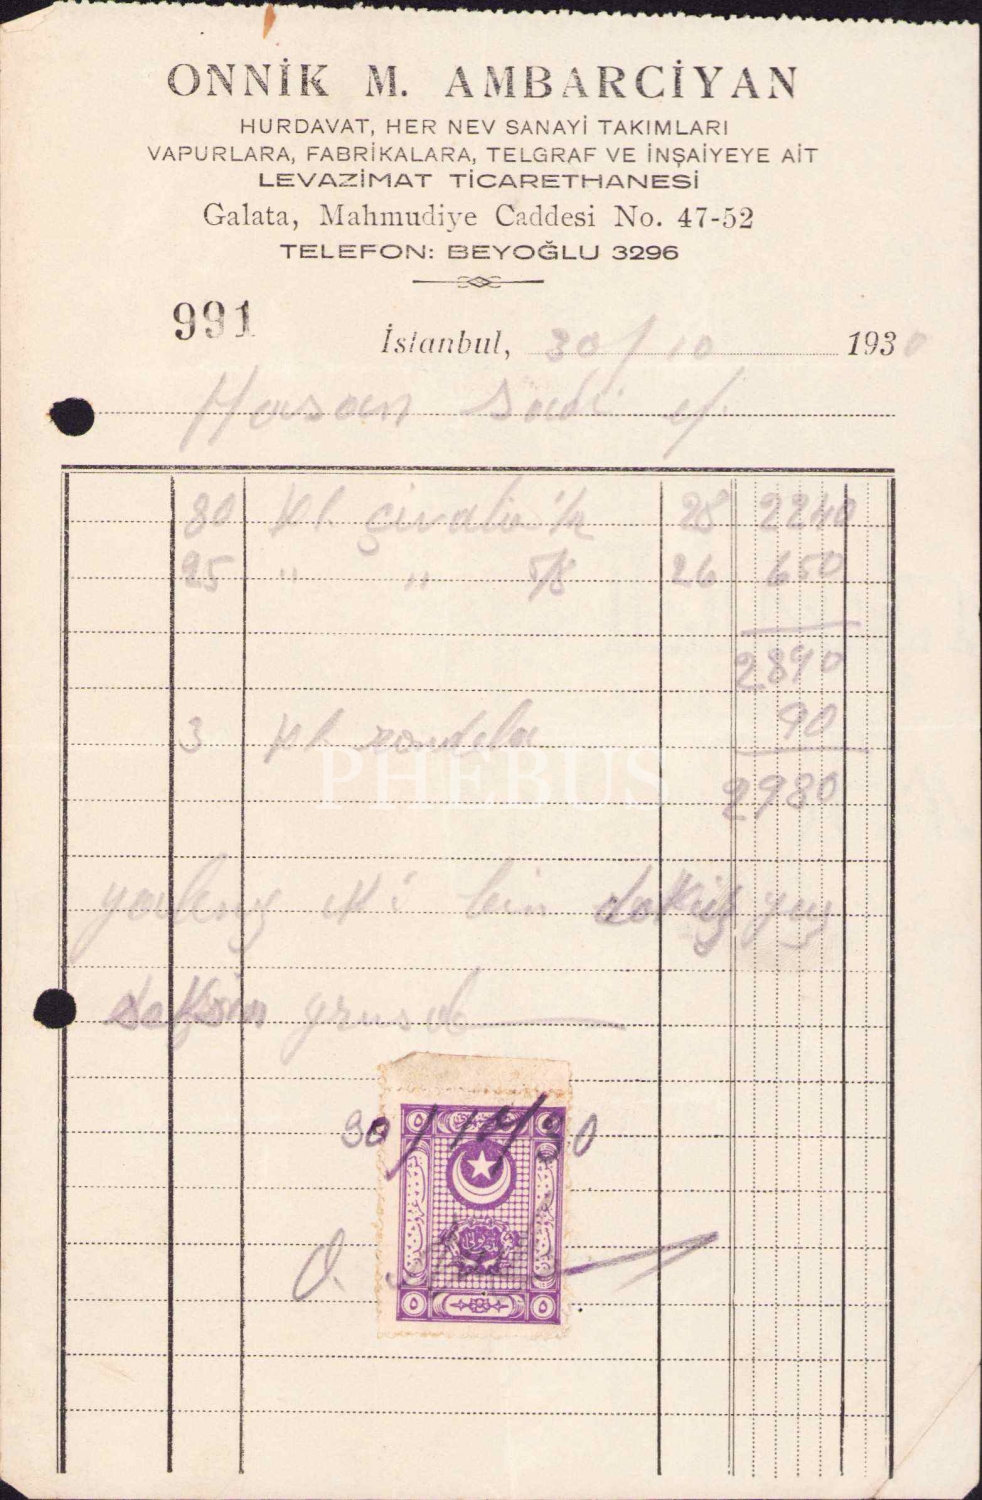 ONNİK M. AMBARCİYAN
HURDAVAT, HER NEV SANAYİ TAKIMLARI
VAPURLARA, FABRİKALARA, TELGRAF VE İNŞAİYEYE AİT
LEVAZİMAT TİCARETHANESİ
Galata, Mahmudiye Caddesi No. 47-52
TELEFON: BEYOĞLU 3296
991 İstanbul, 30/10 1930
Hasan Sadi ef.
80 Kl. çivata 1/2 28 2240
25 " " 5/8 26 650
2890
3 Kl rondela 90
2980
PHEBUS
yalnız iki bin dokuz yuz
seksen
30/10/30
٥ ٥
O.
٥ ٥